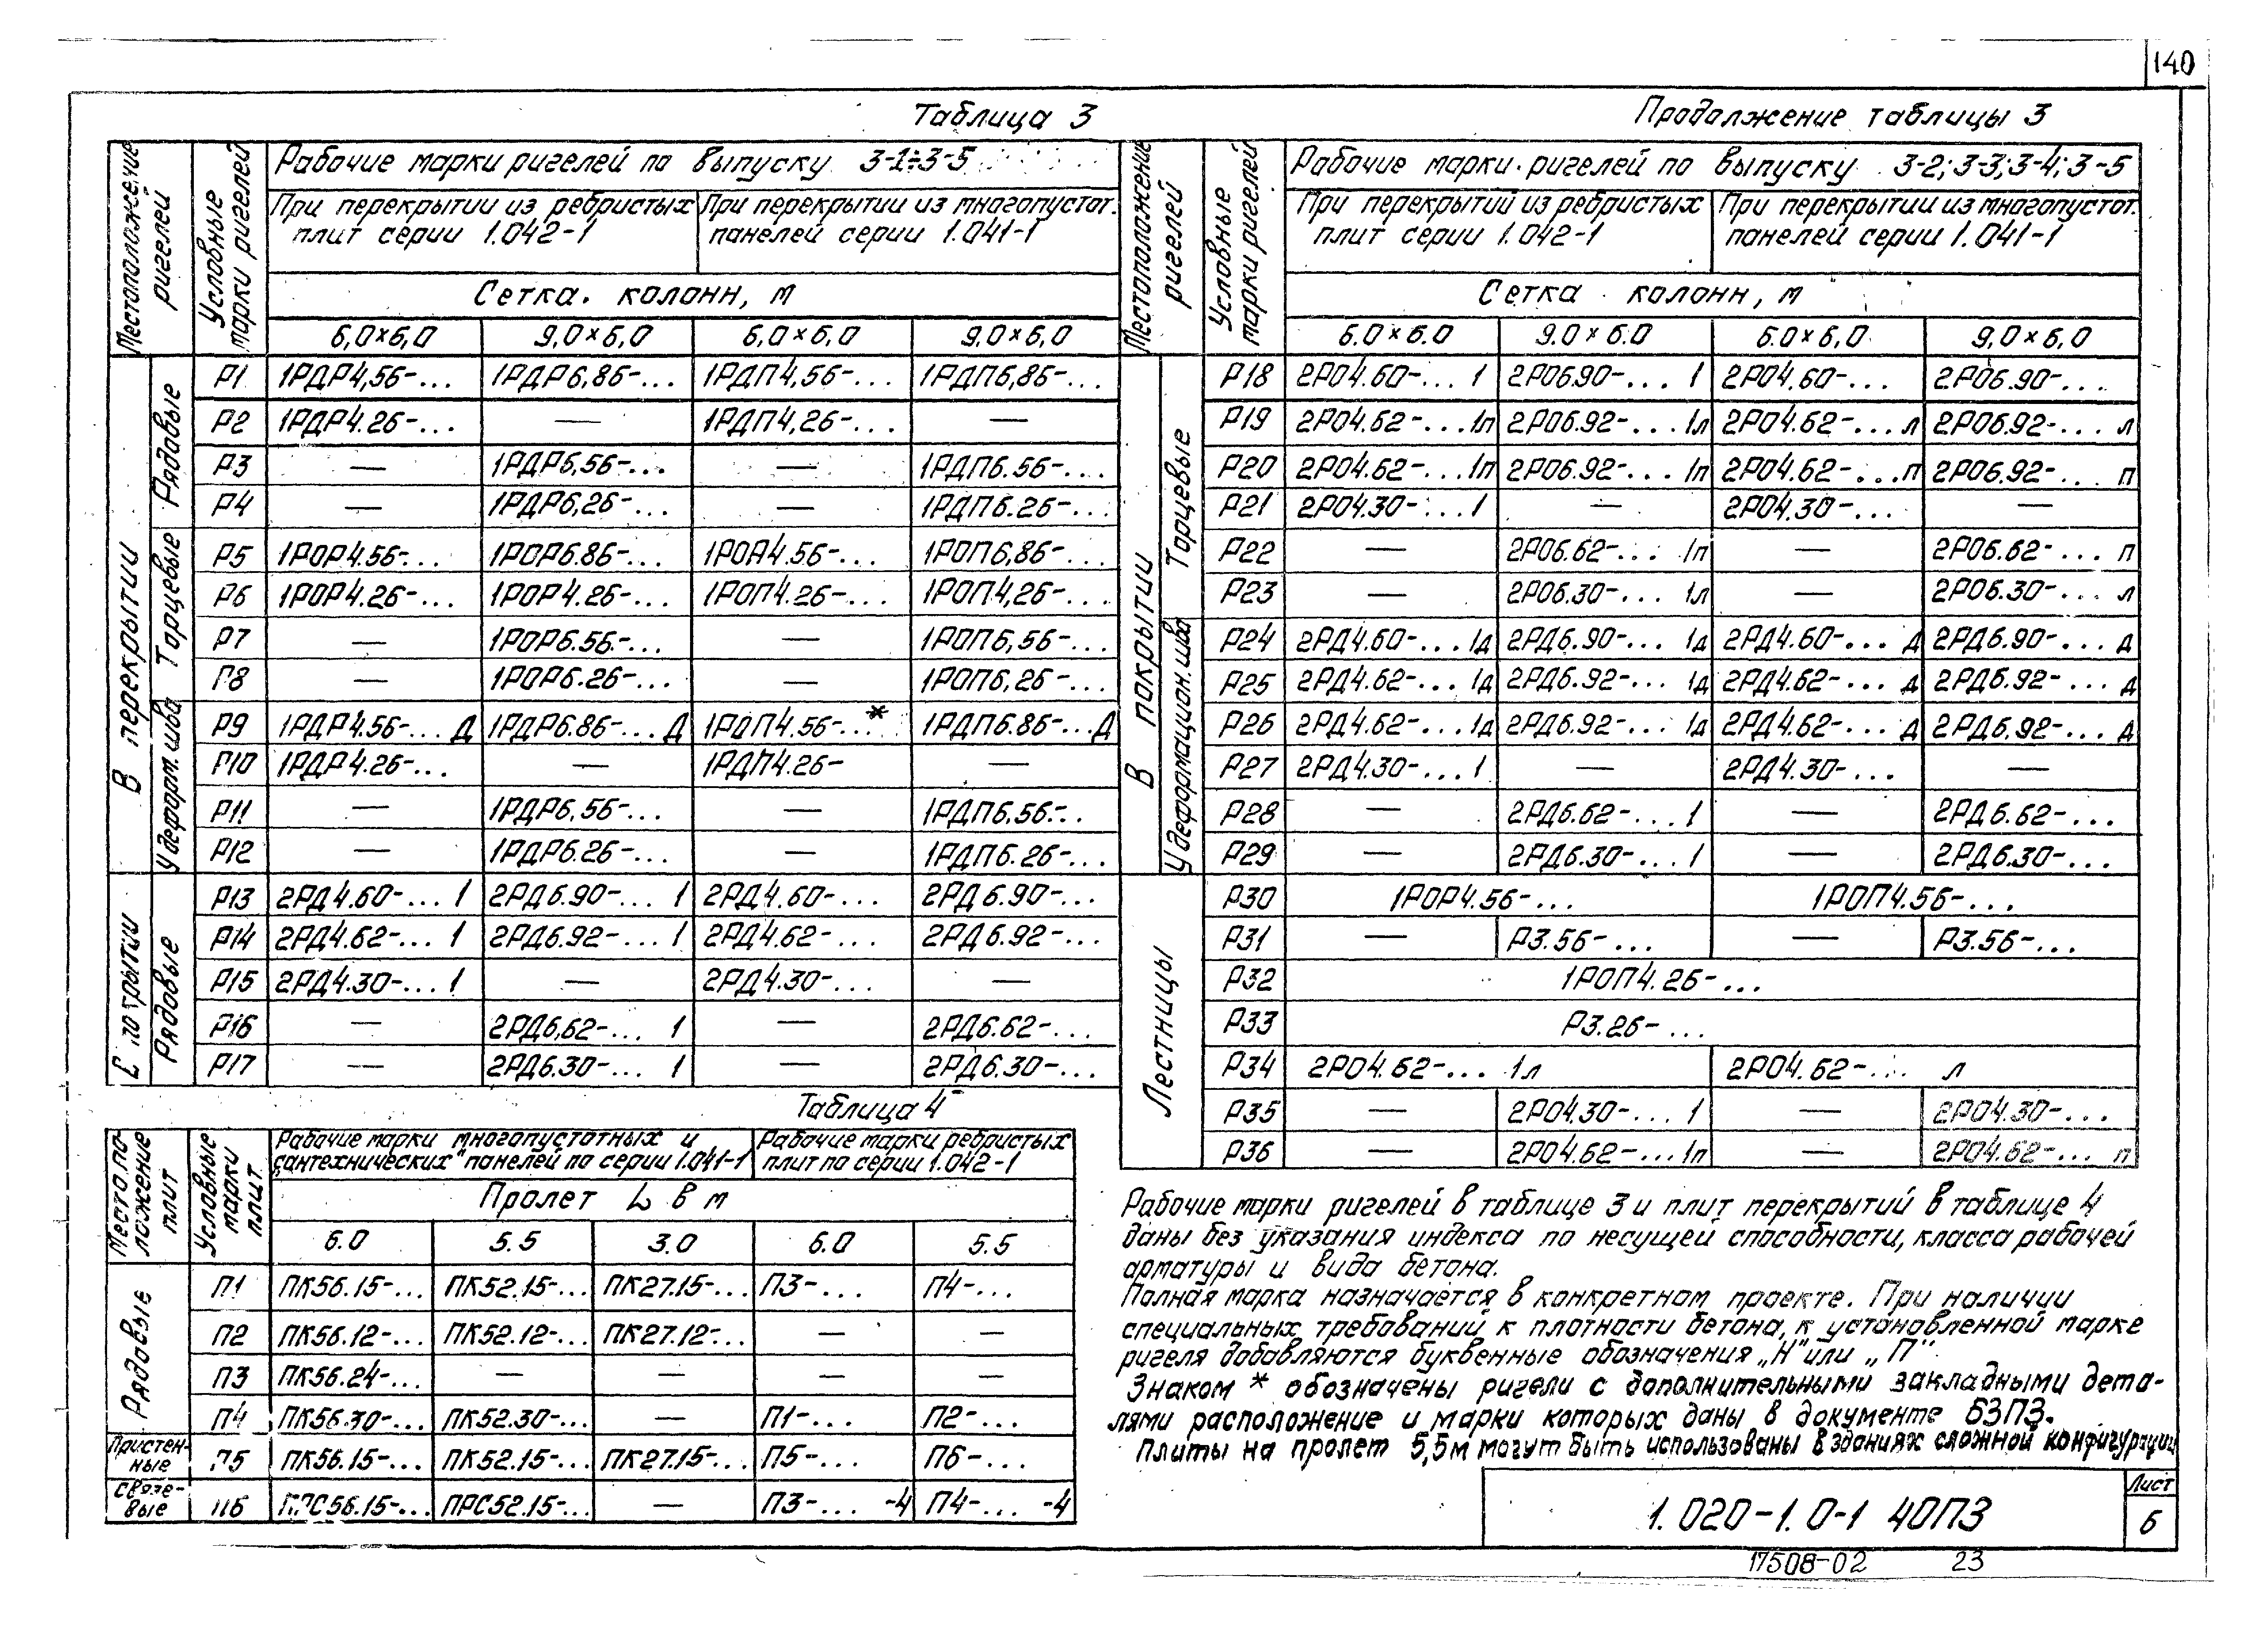 140
Таблица 3
Местоположение ригелей
Условные марки ригелей
Рабочие марки ригелей по выпуску 3-1÷3-5
При перекрытии из ребристых плит серии 1.042-1
При перекрытии из многопустот. панелей серии 1.041-1
Сетка колонн, м
6,0×6,0 9,0×6,0 6,0×6,0 9,0×6,0
В перекрытии
Рядовые
Р1 1РДР4,56-... 1РДР6,86-... 1РДП4,56-... 1РДП6,86-...
Р2 1РДР4.26-... — 1РДП4,26-... —
Р3 — 1РДР6.56-... — 1РДП6.56-...
Р4 — 1РДР6,26-... — 1РДП6.26-...
Торцевые
Р5 1РОР4.56-... 1РОР6.86-... 1РОП4.56-... 1РОП6,86-...
Р6 1РОР4.26-... 1РОР4.26-... 1РОП4.26-... 1РОП4,26-...
Р7 — 1РОР6.56-... — 1РОП6,56-...
Р8 — 1РОР6.26-... — 1РОП6,26-...
У деформ. шва
Р9 1РДР4.56-... Д 1РДР6.86-... Д 1РДП4.56-...* 1РДП6.86-... Д
Р10 1РДР4.26-... — 1РДП4.26- —
Р11 — 1РДР6,56-... — 1РДП6,56-..
Р12 — 1РДР6.26-... — 1РДП6.26-...
С покрытии
Рядовые
Р13 2РД4.60-... 1 2РД6.90-... 1 2РД4.60-... 2РД6.90-...
Р14 2РД4.62-... 1 2РД6.92-... 1 2РД4.62-... 2РД6.92-...
Р15 2РД4.30-... 1 — 2РД4.30-... —
Р16 — 2РД6,62-... 1 — 2РД6.62-...
Р17 — 2РД6.30-... 1 — 2РД6.30-...
Продолжение таблицы 3
Местоположение ригелей
Условные марки ригелей
Рабочие марки ригелей по выпуску 3-2; 3-3; 3-4; 3-5
При перекрытий из ребристых плит серии 1.042-1
При перекрытии из многопустот. панелей серии 1.041-1
Сетка колонн, м
6.0×6.0 9.0×6.0 6.0×6,0 9,0×6,0
В покрытии
Торцевые
Р18 2РО4.60-... 1 2РО6.90-... 1 2РО4.60-... 2РО6.90-...
Р19 2РО4.62-... 1п 2РО6.92-... 1л 2РО4.62-... л 2РО6.92-... л
Р20 2РО4.62-... 1п 2РО6.92-... 1п 2РО4.62-... п 2РО6.92-... п
Р21 2РО4.30-... 1 — 2РО4.30-... —
Р22 — 2РО6.62-... 1п — 2РО6.62-... п
Р23 — 2РО6.30-... 1л — 2РО6.30-... л
У деформацион. шва
Р24 2РД4.60-... 1д 2РД6.90-... 1д 2РД4.60-... д 2РД6.90-... д
Р25 2РД4.62-... 1д 2РД6.92-... 1д 2РД4.62-... д 2РД6.92-... д
Р26 2РД4.62-... 1д 2РД6.92-... 1д 2РД4.62-... д 2РД6.92-... д
Р27 2РД4.30-... 1 — 2РД4.30-... —
Р28 — 2РД6.62-... 1 — 2РД6.62-...
Р29 — 2РД6.30-... 1 — 2РД6.30-...
Лестницы
Р30 1РОР4.56-... 1РОП4.56-...
Р31 — Р3.56-... — Р3.56-...
Р32 1РОП4.26-...
Р33 Р3.26-...
Р34 2РО4.62-... 1л 2РО4.62-... л
Р35 — 2РО4.30-... 1 — 2РО4.30-...
Р36 — 2РО4.62-... 1п — 2РО4.62-... п
Таблица 4
Местоположение плит
Условные марки плит
Рабочие марки многопустотных и
сантехнических" панелей по серии 1.041-1
Рабочие марки ребристых
плит по серии 1.042-1
Пролет L в м
6.0 5.5 3.0 6.0 5.5
Рядовые
П1 ПК56.15-... ПК52.15-... ПК27.15-... П3-... П4-...
П2 ПК56.12-... ПК52.12-... ПК27.12-... — —
П3 ПК56.24-... — — — —
П4 ПК56.30-... ПК52.30-... — П1-... П2-...
Пристенные
П5 ПК56.15-... ПК52.15-... ПК27.15-... П5-... П6-...
Связевые
П6 ПРС56.15-... ПРС52.15-... — П3-... -4 П4-... -4
Рабочие марки ригелей в таблице 3 и плит перекрытий в таблице 4
даны без указания индекса по несущей способности, класса рабочей
арматуры и вида бетона.
Полная марка назначается в конкретном проекте. При наличии
специальных требований к плотности бетона, к установленной марке
ригеля добавляются буквенные обозначения „Н" или „П"
Знаком * обозначены ригели с дополнительными закладными дета-
лями расположение и марки которых даны в документе 63ПЗ.
Плиты на пролет 5,5м могут быть использованы в зданиях сложной конфигурации
1.020-1.0-1 40ПЗ
Лист
6
17508-02 23